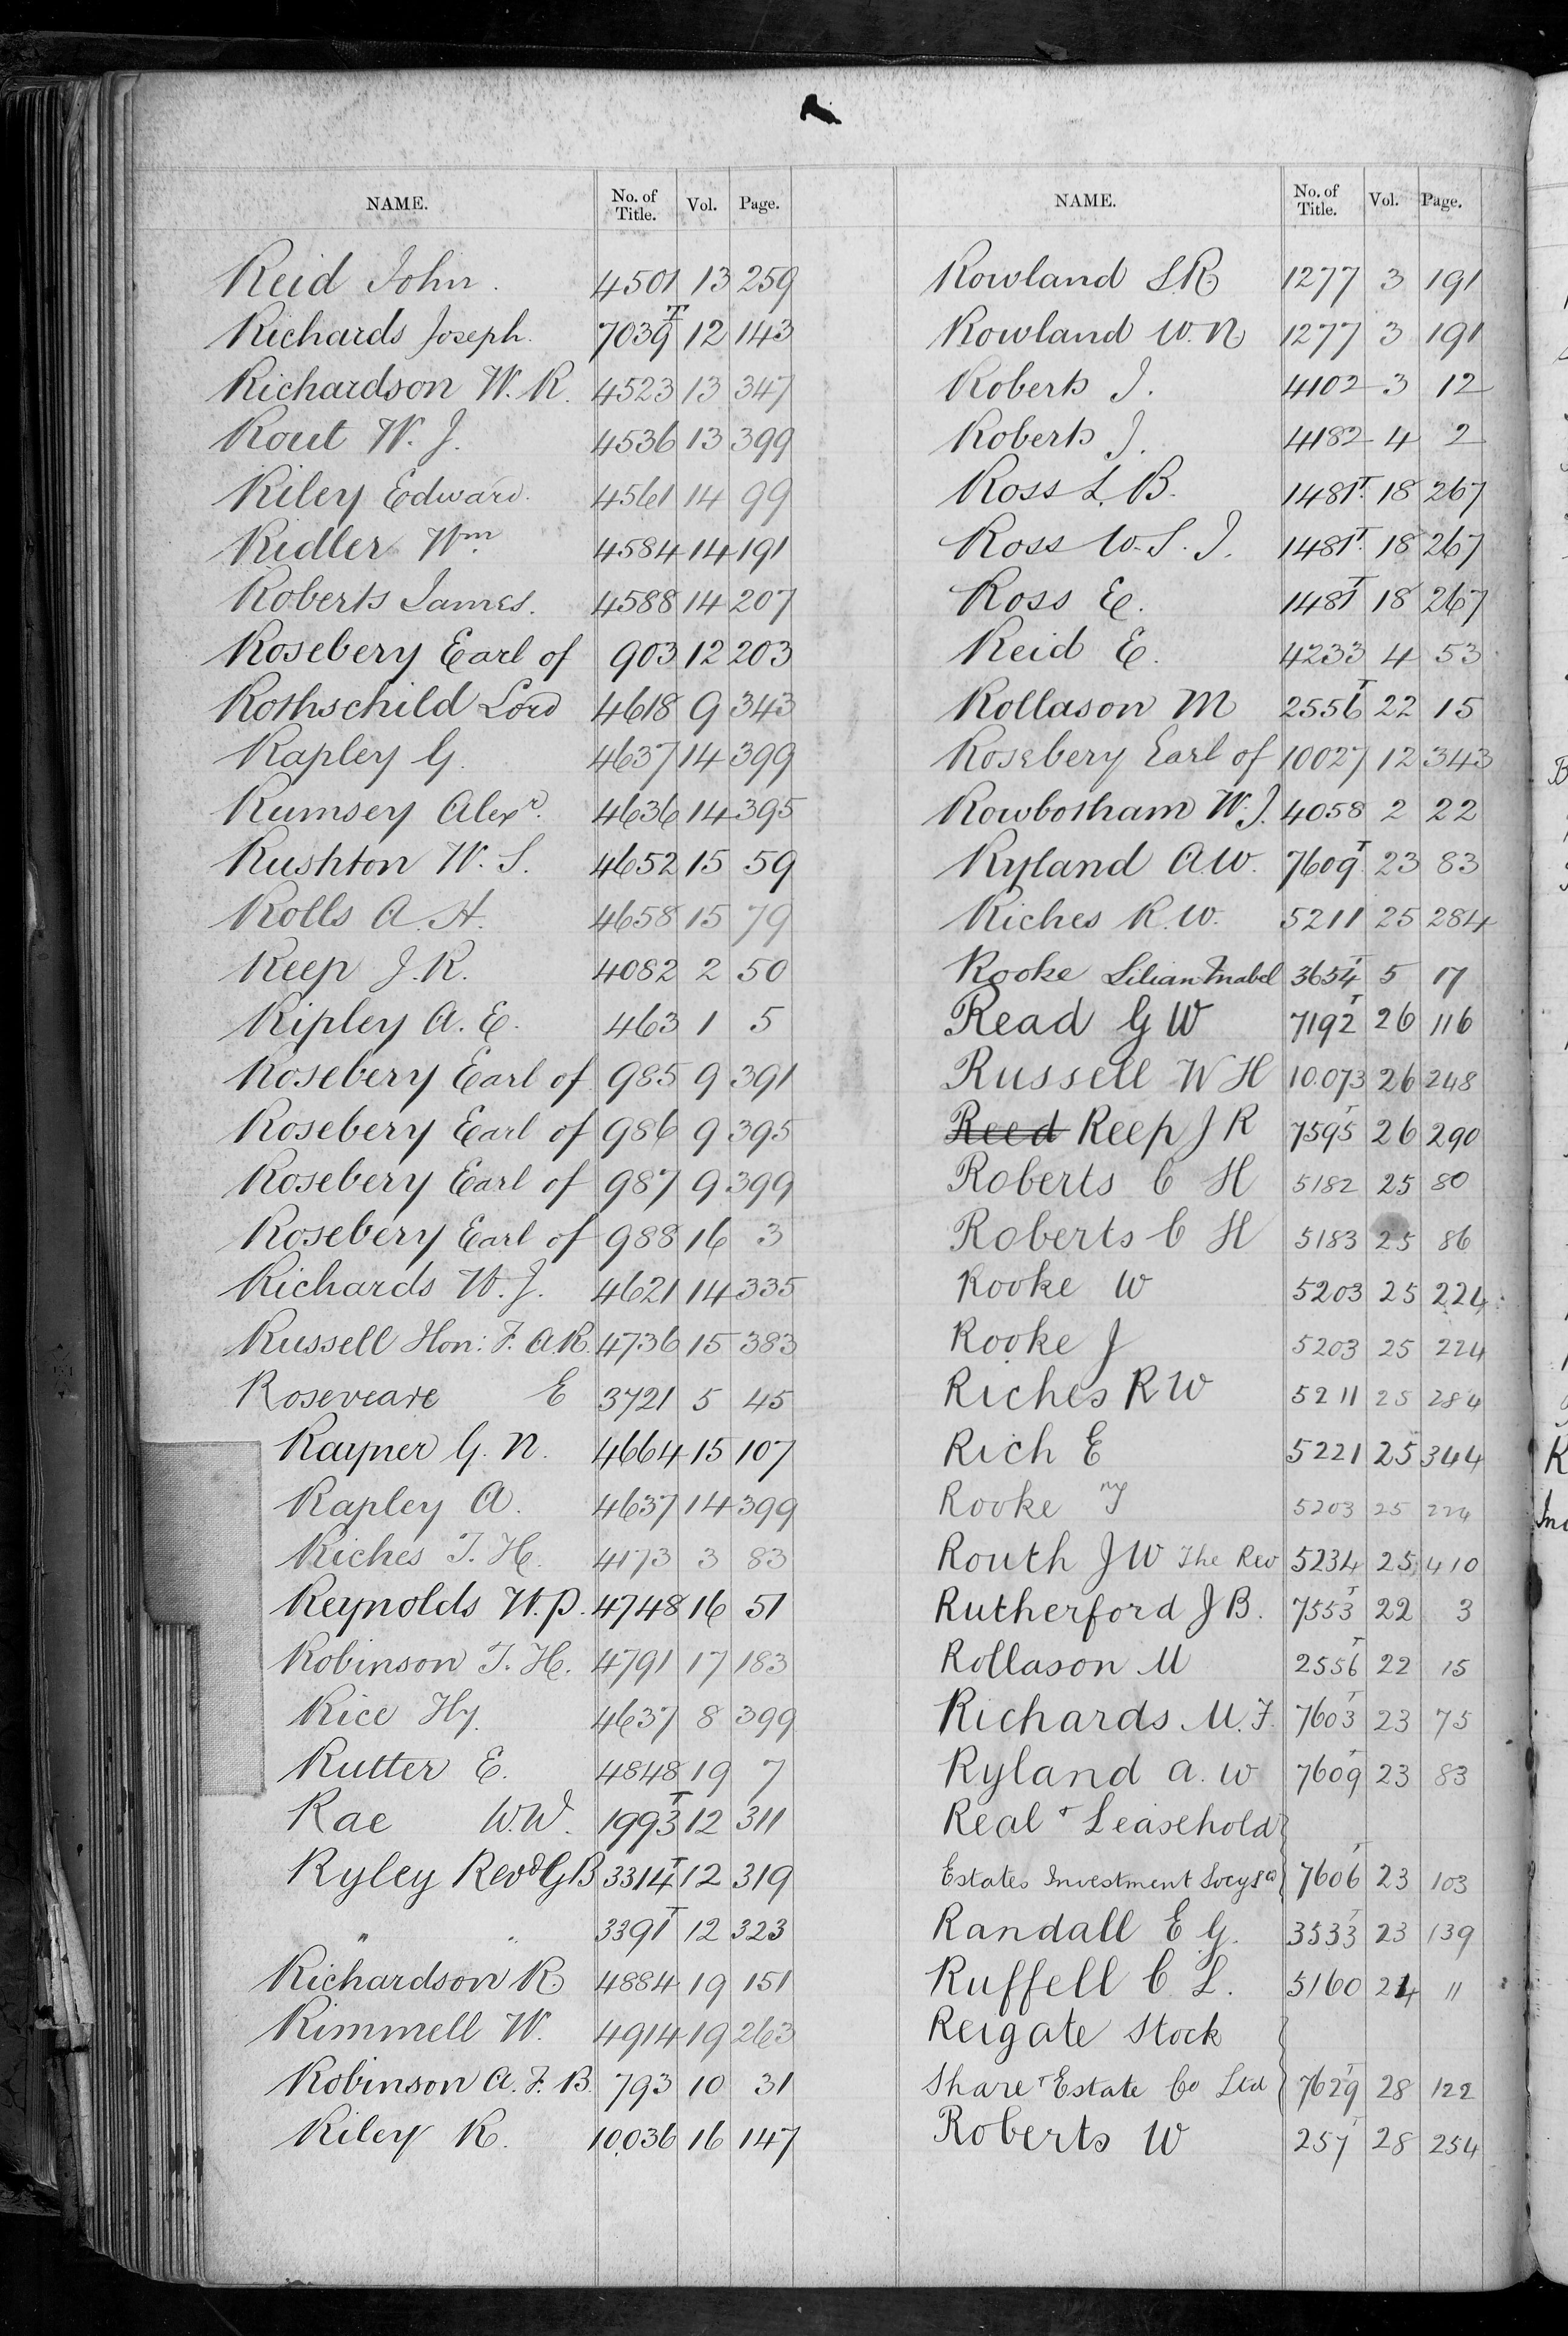 NAME. No. of Title. Vol. Page.
Reid John. 4501 13 259
Richards Joseph. 7039T 12 143
Richardson W. R. 4523 13 347
Rout W. J. 4536 13 399
Riley Edward. 4561 14 99
Ridler Wm 4584 14 191
Roberts James. 4588 14 207
Rosebery Earl of 903 12 203
Rothschild Lord 4618 9 343
Rapley G. 4637 14 399
Rumsey Alexr. 4636 14 395
Rushton W. S. 4652 15 59
Rolls A. H. 4658 15 79
Reep J. R. 4082 2 50
Ripley A. E. 463 1 5
Rosebery Earl of 985 9 391
Rosebery Earl of 986 9 395
Rosebery Earl of 987 9 399
Rosebery Earl of 988 16 3
Richards W. J. 4621 14 335
Russell Hon: F. A.R. 4736 15 383
Roseveare E 3721 5 45
Rayner G. N. 4664 15 107
Rapley A. 4637 14 399
Riches T. H. 4173 3 83
Reynolds W. P. 4748 16 51
Robinson T. H. 4791 17 183
Rice Hy. 4637 8 399
Rutter E. 4848 19 7
Rae W.W. 1993T 12 311
Ryley Revd GB 3314T 12 319
" " 3391T 12 323
Richardson R. 4884 19 151
Rimmell W. 4914 19 263
Robinson A. F. B. 793 10 31
Riley R. 10.036 16 147
NAME. No. of Title. Vol. Page.
Rowland S.R. 1277 3 191
Rowland W. N. 1277 3 191
Roberts J. 4102 3 12
Roberts J. 4182 4 2
Ross L. B. 1481T. 18 267
Ross W. S. J. 1481T. 18 267
Ross E. 1481T 18 267
Reid E. 4233 4 53
Rollason M 2556T 22 15
Rosebery Earl of 10027 12 343
Rowbotham W. J. 4058 2 22
Ryland A.W. 7609T 23 83
Riches R. W. 5211 25 284
Rooke Lilian Mabel 3654T 5 17
Read G W 7192T 26 116
Russell W H 10.073 26 248
Reed Reep J R 7595T 26 290
Roberts C H 5182 25 80
Roberts C H 5183 25 86
Rooke W 5203 25 224
Rooke J 5203 25 224
Riches R W 5211 25 284
Rich E 5221 25 344
Rooke 5203 25 224
Routh J W The Rev 5234 25 410
Rutherford J B. 7553T 22 3
Rollason M 2556T 22 15
Richards M. F. 7603T 23 75
Ryland A. W 7609T 23 83
Real + Leasehold
Estates Investment Socys Co 7606T 23 103
Randall E G. 3533T 23 139
Ruffell C L. 5160 24 11
Reigate Stock
Share + Estate Co Ltd 7629T 28 122
Roberts W 257T 28 254